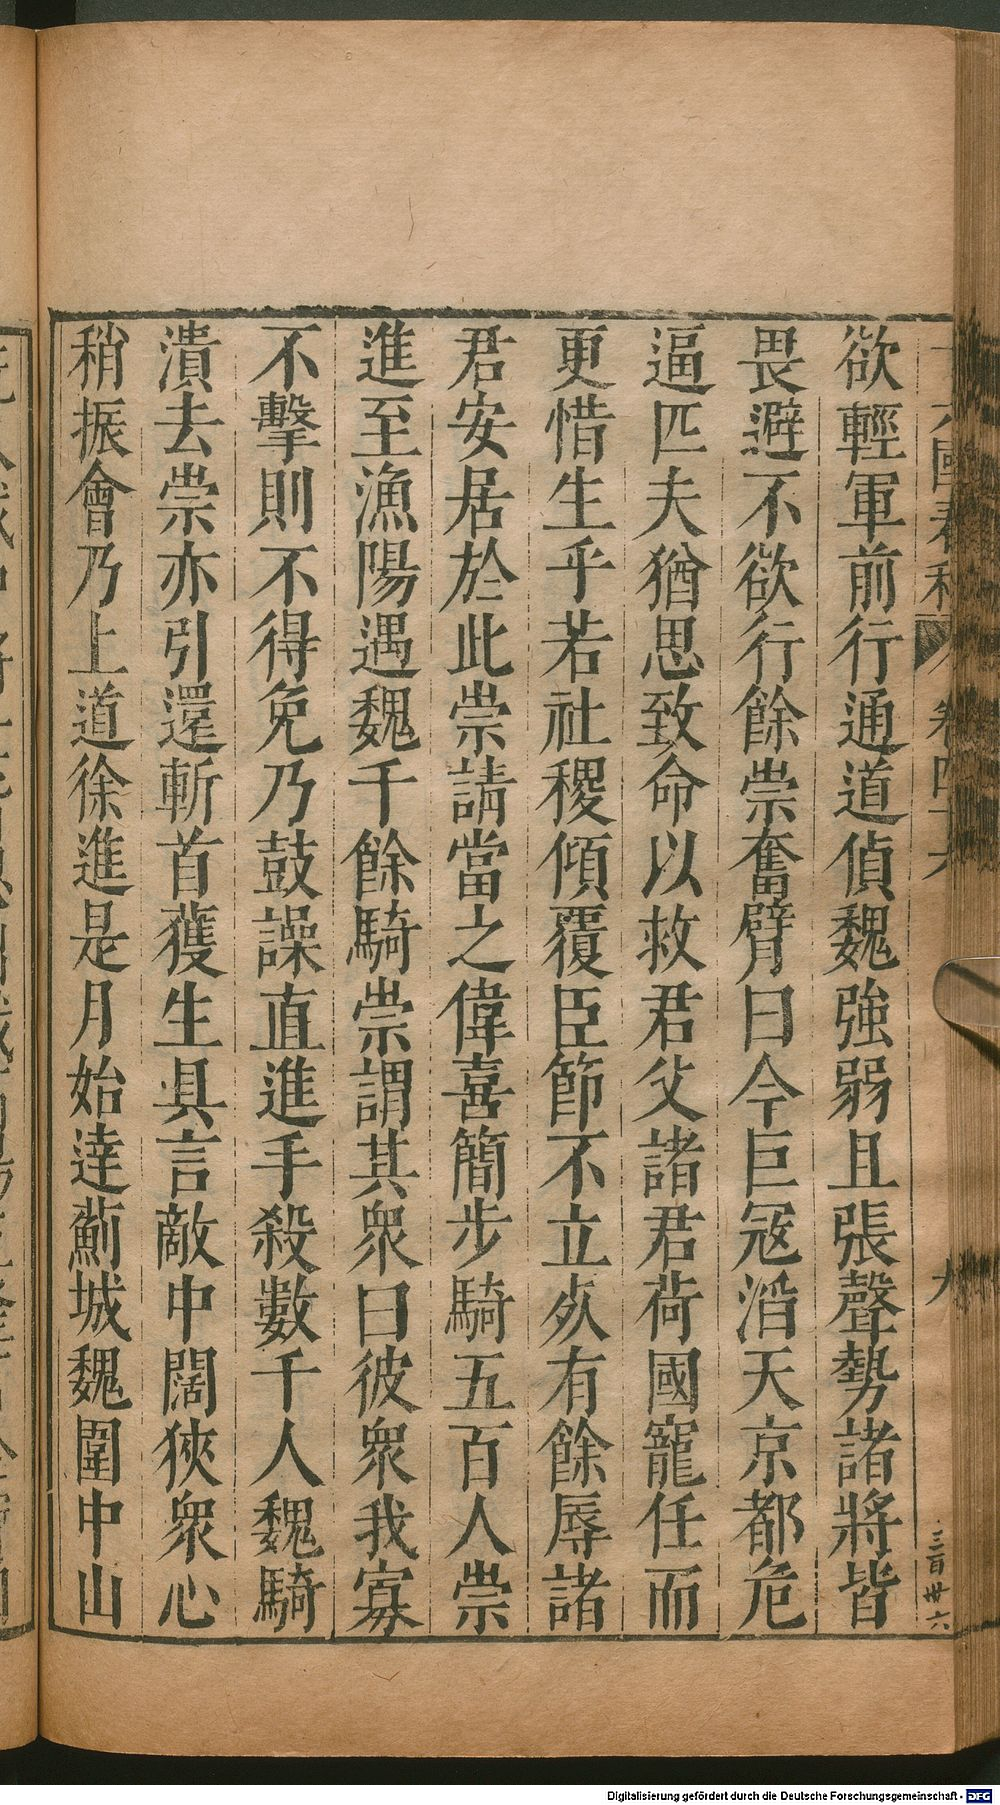 欲輕軍前行通道偵魏強弱且張聲勢諸將皆
畏避不欲行餘崇奮臂曰今巨宼滔天京都危
逼匹夫猶思致命以救君父諸君荷國寵任而
更惜生乎若社稷傾覆臣節不立死有餘辱諸
君安居於此崇請當之偉喜簡步騎五百人崇
進至漁陽遇魏千餘騎崇謂其眾曰彼眾我寡
不擊則不得免乃鼓譟直進手殺數千人魏騎
潰去崇亦引還斬首獲生具言敵中闊狹眾心
稍振會乃上道徐進是月始達薊城魏圍中山
國春秋
卷四十六
九
三百卅六
Digitalisierung gefördert durch die Deutsche Forschungsgemeinschaft - DFG